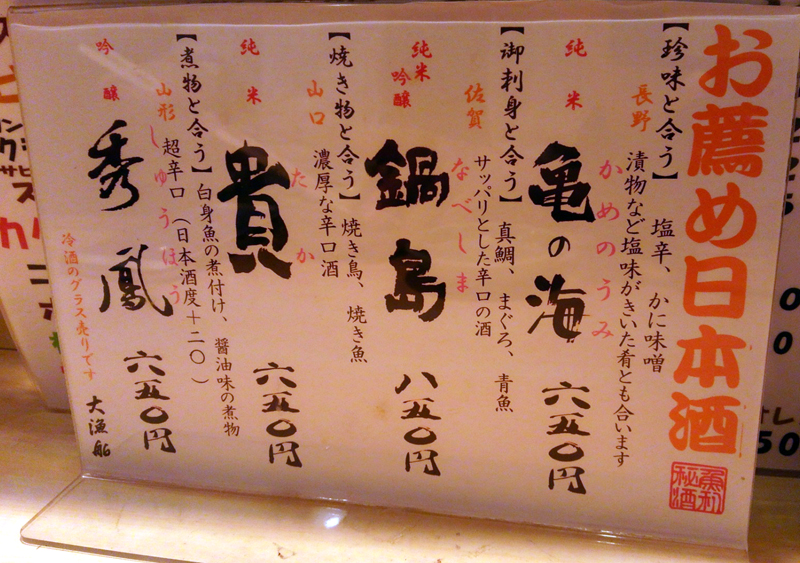 お薦め日本酒
【珍味と合う】 塩辛、かに味噌
漬物など塩味がきいた肴とも合います
長野
かめのうみ
純米
亀の海 六五〇円
【御刺身と合う】 真鯛、まぐろ、青魚
サッパリとした辛口の酒
佐賀
なべしま
純米
吟醸
鍋島 八五〇円
【焼き物と合う】 焼き鳥、焼き魚
濃厚な辛口酒
山口
たか
純米
貴 六五〇円
【煮物と合う】 白身魚の煮付け、醤油味の煮物
超辛口 (日本酒度+二〇)
山形
しゅうほう
吟醸
秀鳳 六五〇円
冷酒のグラス売りです
大漁船